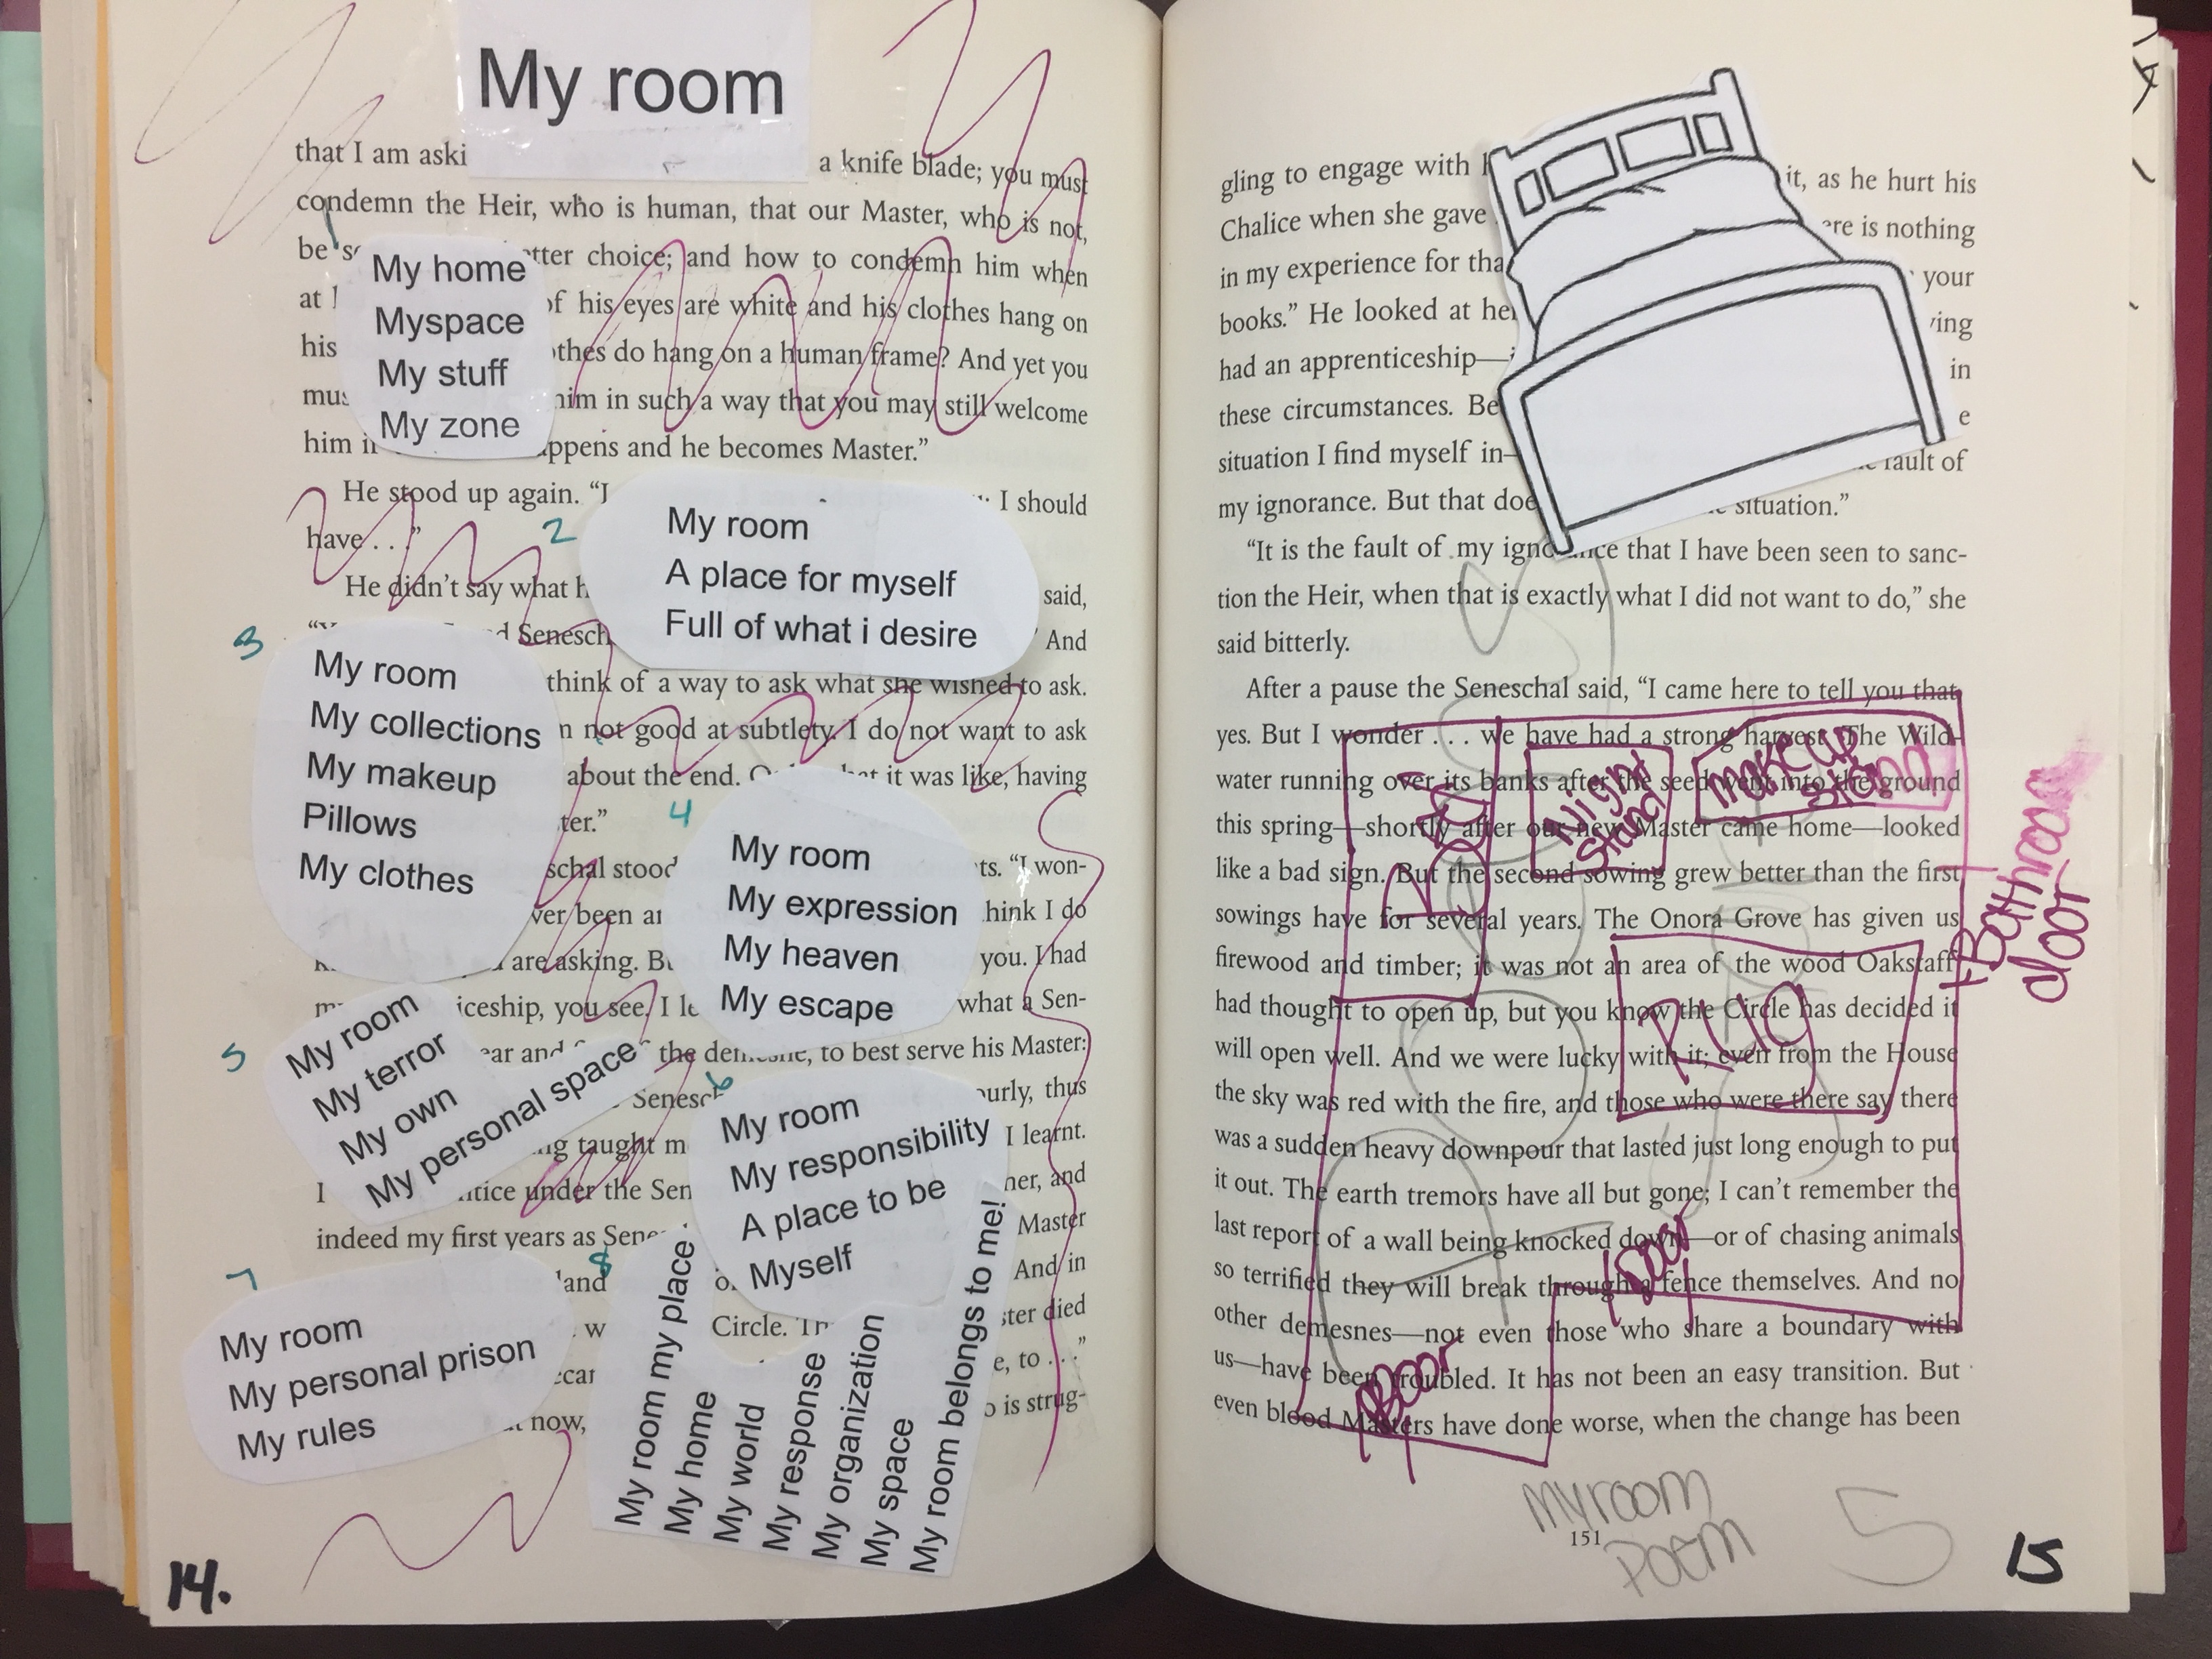 My room
that I am aski
a knife blade; you must
condemn the Heir, who is human, that our Master, who is not,
be tter choice; and how to condemn him when
at of his eyes are white and his clothes hang on
his othes do hang on a human frame? And yet you
mus him in such a way that you may still welcome
him i appens and he becomes Master.”
1
My home
Myspace
My stuff
My zone
He stood up again. “I I should
have . . .”
He didn’t say what h said,
Senesch And
think of a way to ask what she wished to ask.
n not good at subtlety. I do not want to ask
about the end. at it was like, having
ter.”
schal stood ts. “I won-
ver been ar hink I do
are asking. B you. I had
iceship, you see, I le what a Sen-
ear and the demesne, to best serve his Master:
Senesc ourly, thus
ng taught m I learnt.
I ntice under the Sen her, and
indeed my first years as Sene Master
land And in
w Circle. ster died
ecar e, to . . .”
now, o is strug-
2
My room
A place for myself
Full of what i desire
3
My room
My collections
My makeup
Pillows
My clothes
4
My room
My expression
My heaven
My escape
5
My room
My terror
My own
My personal space
6
My room
My responsibility
A place to be
Myself
7
My room
My personal prison
My rules
8
My room my place
My home
My world
My response
My organization
My space
My room belongs to me!
14.
gling to engage with it, as he hurt his
Chalice when she gave ere is nothing
in my experience for tha your
books.” He looked at he ving
had an apprenticeship— in
these circumstances. Be e
situation I find myself in— fault of
my ignorance. But that doe situation.”
“It is the fault of my ignorance that I have been seen to sanc-
tion the Heir, when that is exactly what I did not want to do,” she
said bitterly.
After a pause the Seneschal said, “I came here to tell you that,
yes. But I wonder . . . we have had a strong harvest. The Wild-
water running over its banks after the seed went into the ground
this spring—shortly after our new Master came home—looked
like a bad sign. But the second sowing grew better than the first
sowings have for several years. The Onora Grove has given us
firewood and timber; it was not an area of the wood Oakstaff
had thought to open up, but you know the Circle has decided it
will open well. And we were lucky with it; even from the House
the sky was red with the fire, and those who were there say there
was a sudden heavy downpour that lasted just long enough to put
it out. The earth tremors have all but gone; I can’t remember the
last report of a wall being knocked down—or of chasing animals
so terrified they will break through a fence themselves. And no
other demesnes—not even those who share a boundary with
us—have been troubled. It has not been an easy transition. But
even blood Masters have done worse, when the change has been
BED
Night
stand
makeup
stand
Bathroom
door
RUG
Door
Door
My room
Poem
151
5
15